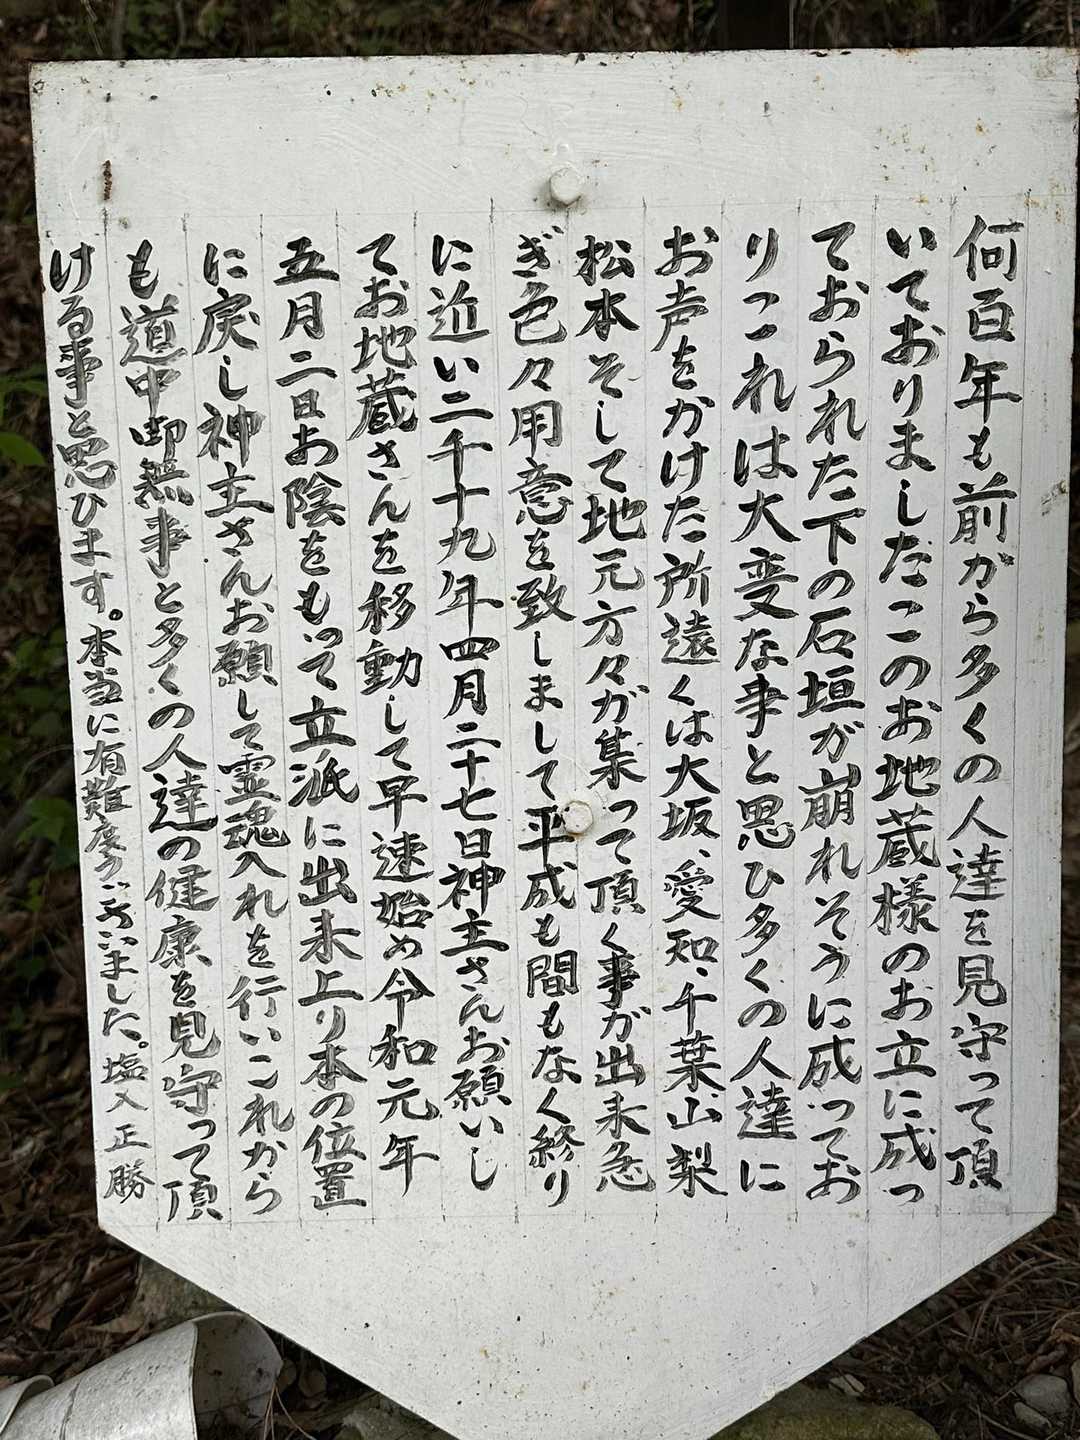 何百年も前から多くの人達を見守って頂
いておりましたこのお地蔵様のお立に成っ
ておられた下の石垣が崩れそうに成ってお
りこれは大変な事と思ひ多くの人達に
お声をかけた所遠くは大坂、愛知、千葉山梨
松本そして地元方々が集って頂く事が出来急
ぎ色々用意を致しまして平成も間もなく終り
に近い二千十九年四月二十七日神主さんお願いし
てお地蔵さんを移動して早速始め令和元年
五月二日お陰をもって立派に出来上り本の位置
に戻し神主さんお願して霊魂入れを行いこれから
も道中御無事と多くの人達の健康を見守って頂
ける事と思ひます。本当に有難度うございました。塩入正勝